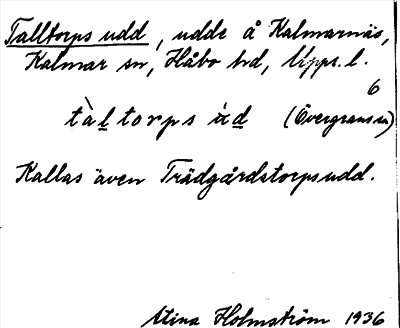 Talltorps udd, udde å Kalmarnäs,
Kalmar sn, Håbo hd, Upps. l.
6
tàl torps ùd (Övergrans sn)
Kallas även Trädgårdstorpsudd.
Stina Holmström 1936